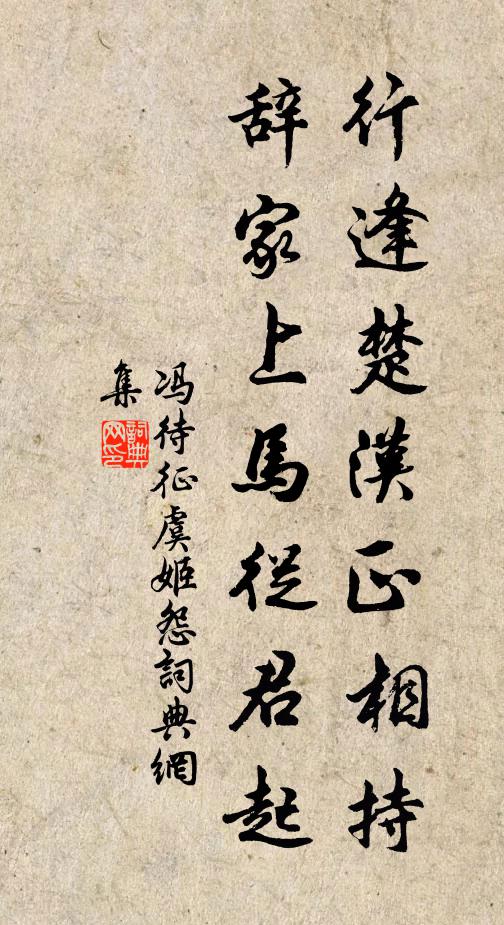 行逢楚漢正相持
辞家上馬從君起
冯待征虞姬怨詞典網
集
詞典
网印